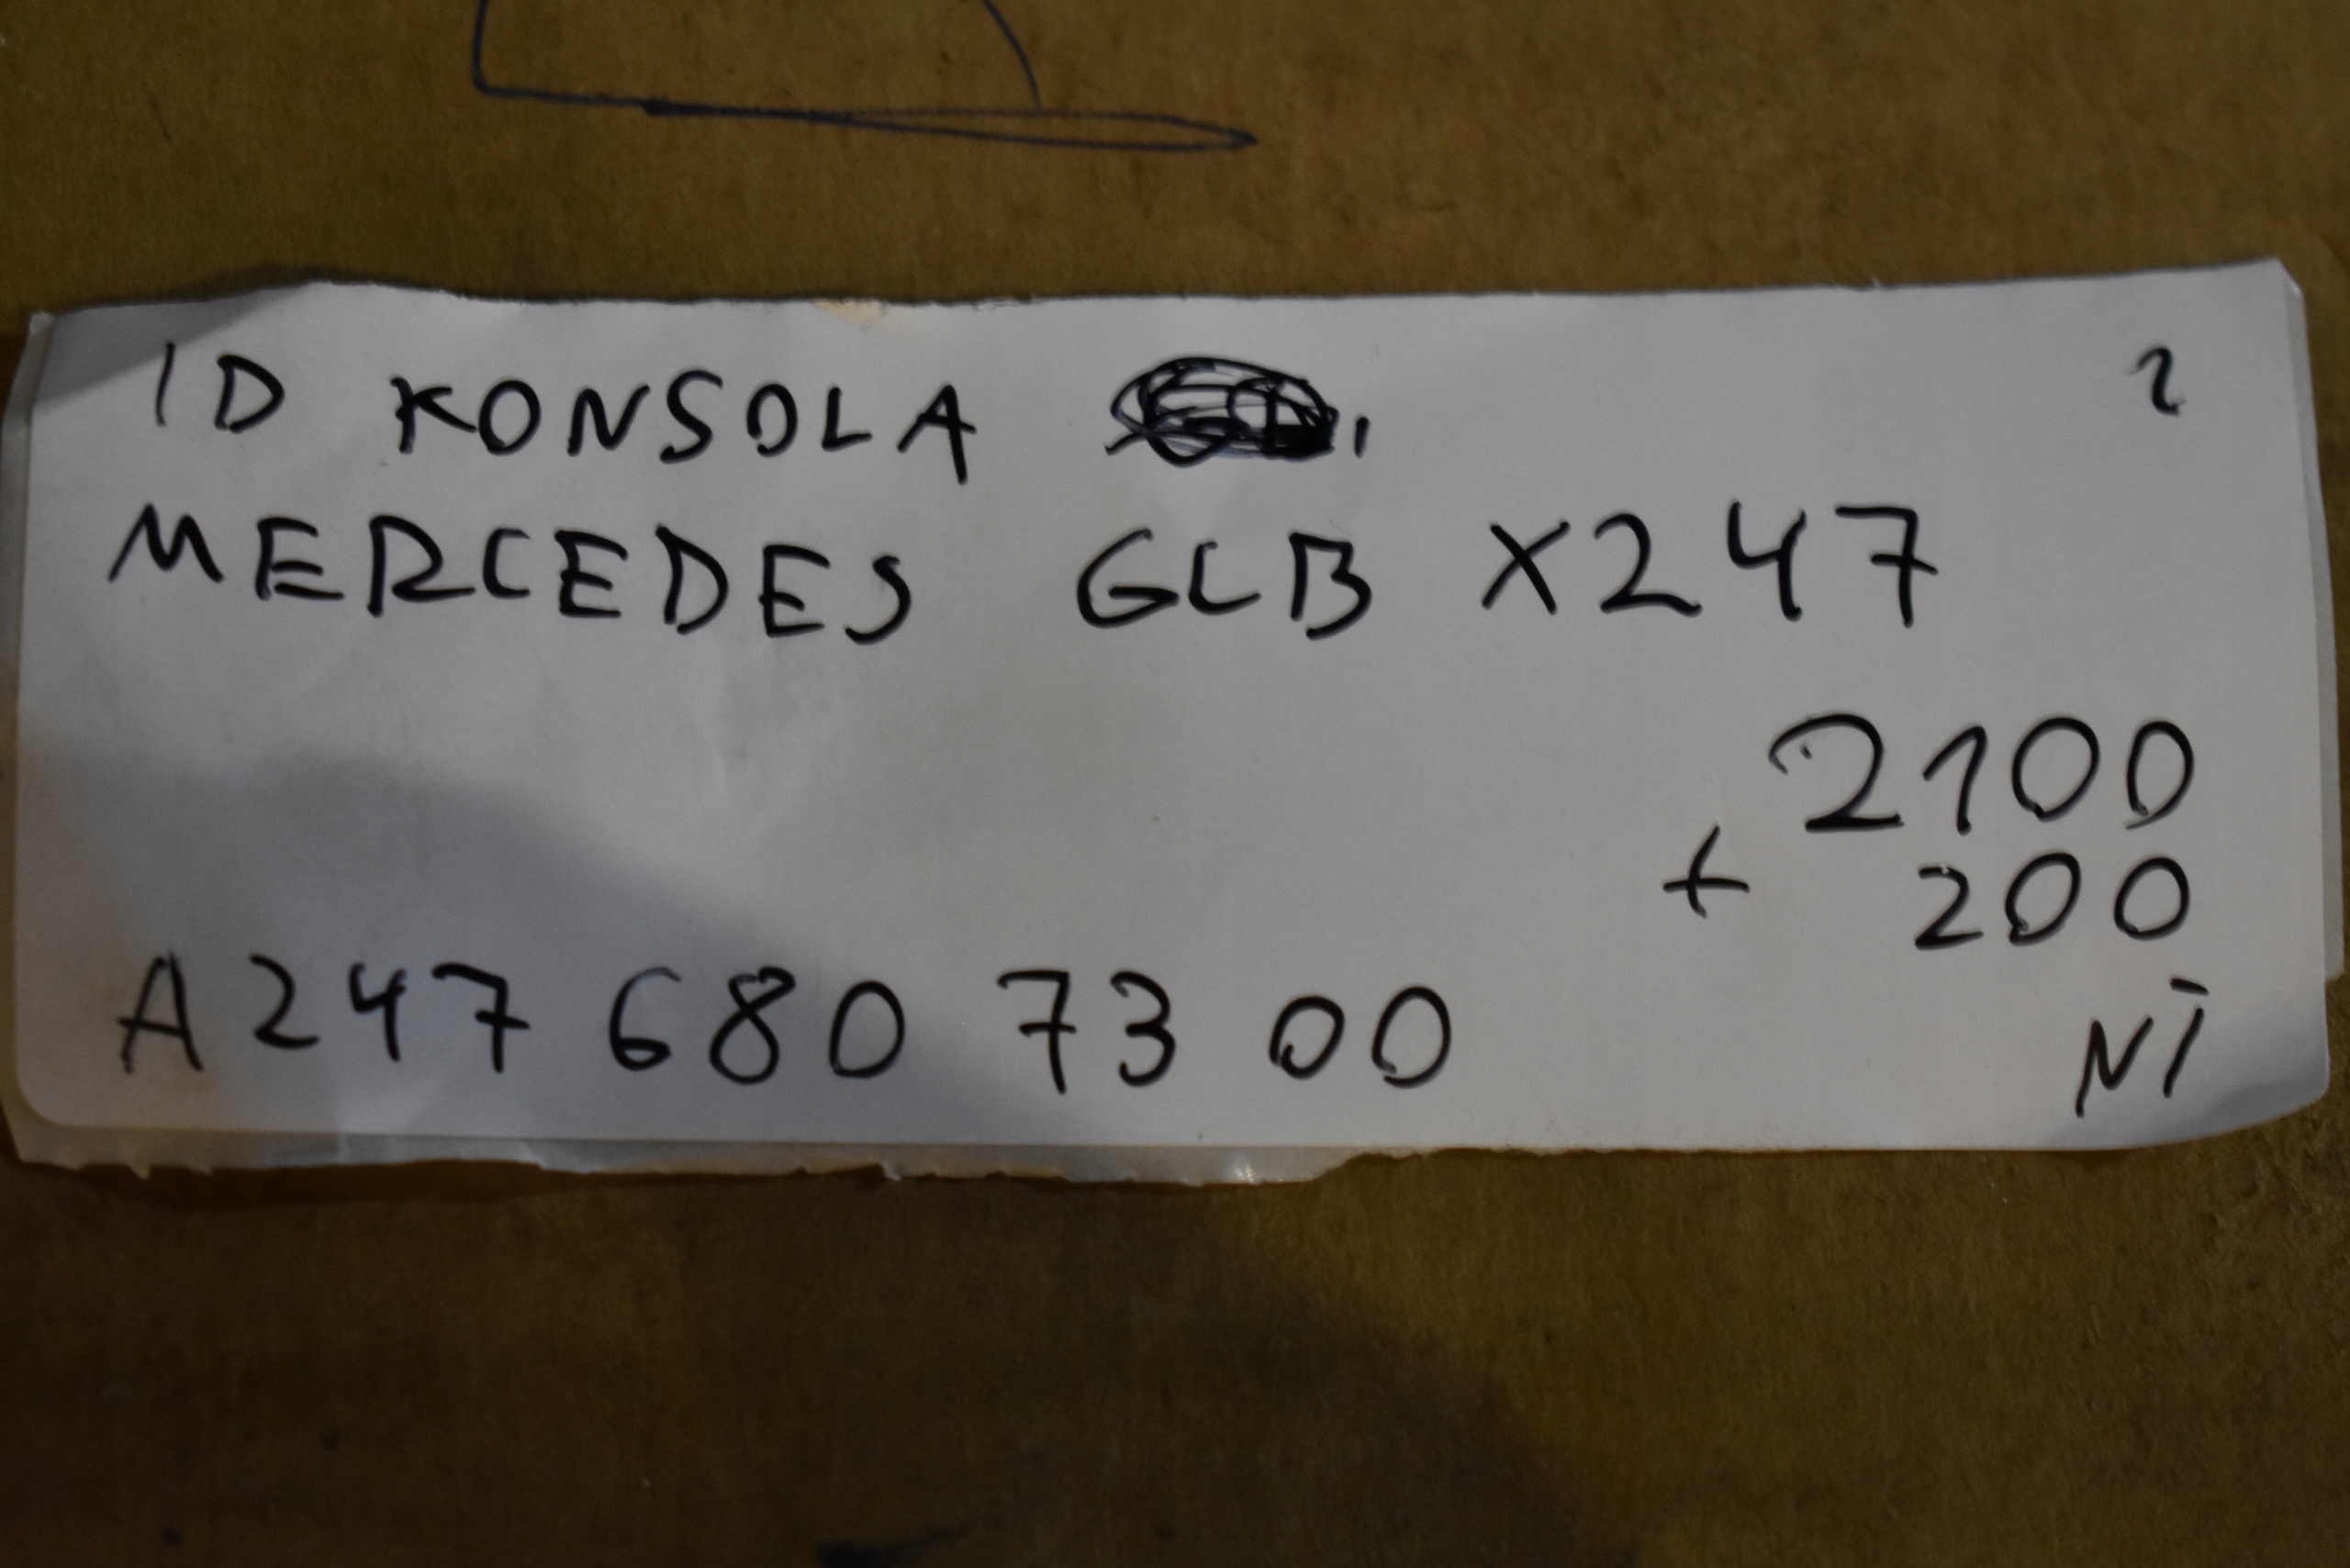 ID KONSOLA 2
MERCEDES GLB X247
2100
+ 200
A247 680 73 00 NI